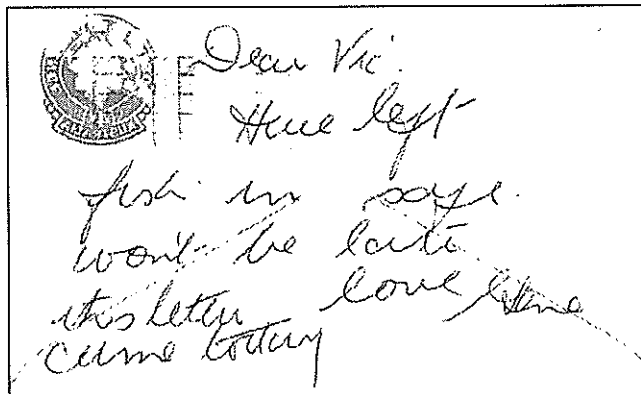 Dear Vic.
Have left
fish in safe.
won't be late
this letter love
came today